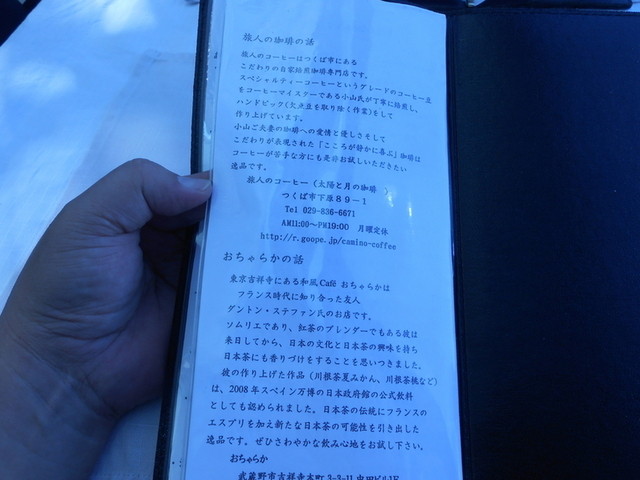 旅人の珈琲の話
旅人のコーヒーはつくば市にある
こだわりの自家焙煎珈琲専門店です。
スペシャルティーコーヒーというグレードのコーヒー豆
をコーヒーマイスターである小山氏が丁寧に焙煎し、
ハンドピック(欠点豆を取り除く作業)をして
作り上げています。
小山ご夫妻の珈琲への愛情と優しさそして
こだわりが表現された「こころが静かに喜ぶ」珈琲は
コーヒーが苦手な方にも是非お試しいただきたい
逸品です。
旅人のコーヒー (太陽と月の珈琲 )
つくば市下原89-1
Tel 029-836-6671
AM11:00~PM19:00 月曜定休
http://r.goope.jp/camino-coffee
おちゃらかの話
東京吉祥寺にある和風Café おちゃらかは
フランス時代に知り合った友人
ゲントン・ステファン氏のお店です。
ソムリエであり、紅茶のブレンダーでもある彼は
来日してから、日本の文化と日本茶の興味を持ち
日本茶にも香りづけをすることを思いつきました。
彼の作り上げた作品(川根茶夏みかん、川根茶桃など)
は、2008年スペイン万博の日本政府館の公式飲料
としても認められました。日本茶の伝統にフランスの
エスプリを加え新たな日本茶の可能性を引き出した
逸品です。ぜひさわやかな飲み心地をお試し下さい。
おちゃらか
武蔵野市吉祥寺本町 3-3-11 中田ビル1F